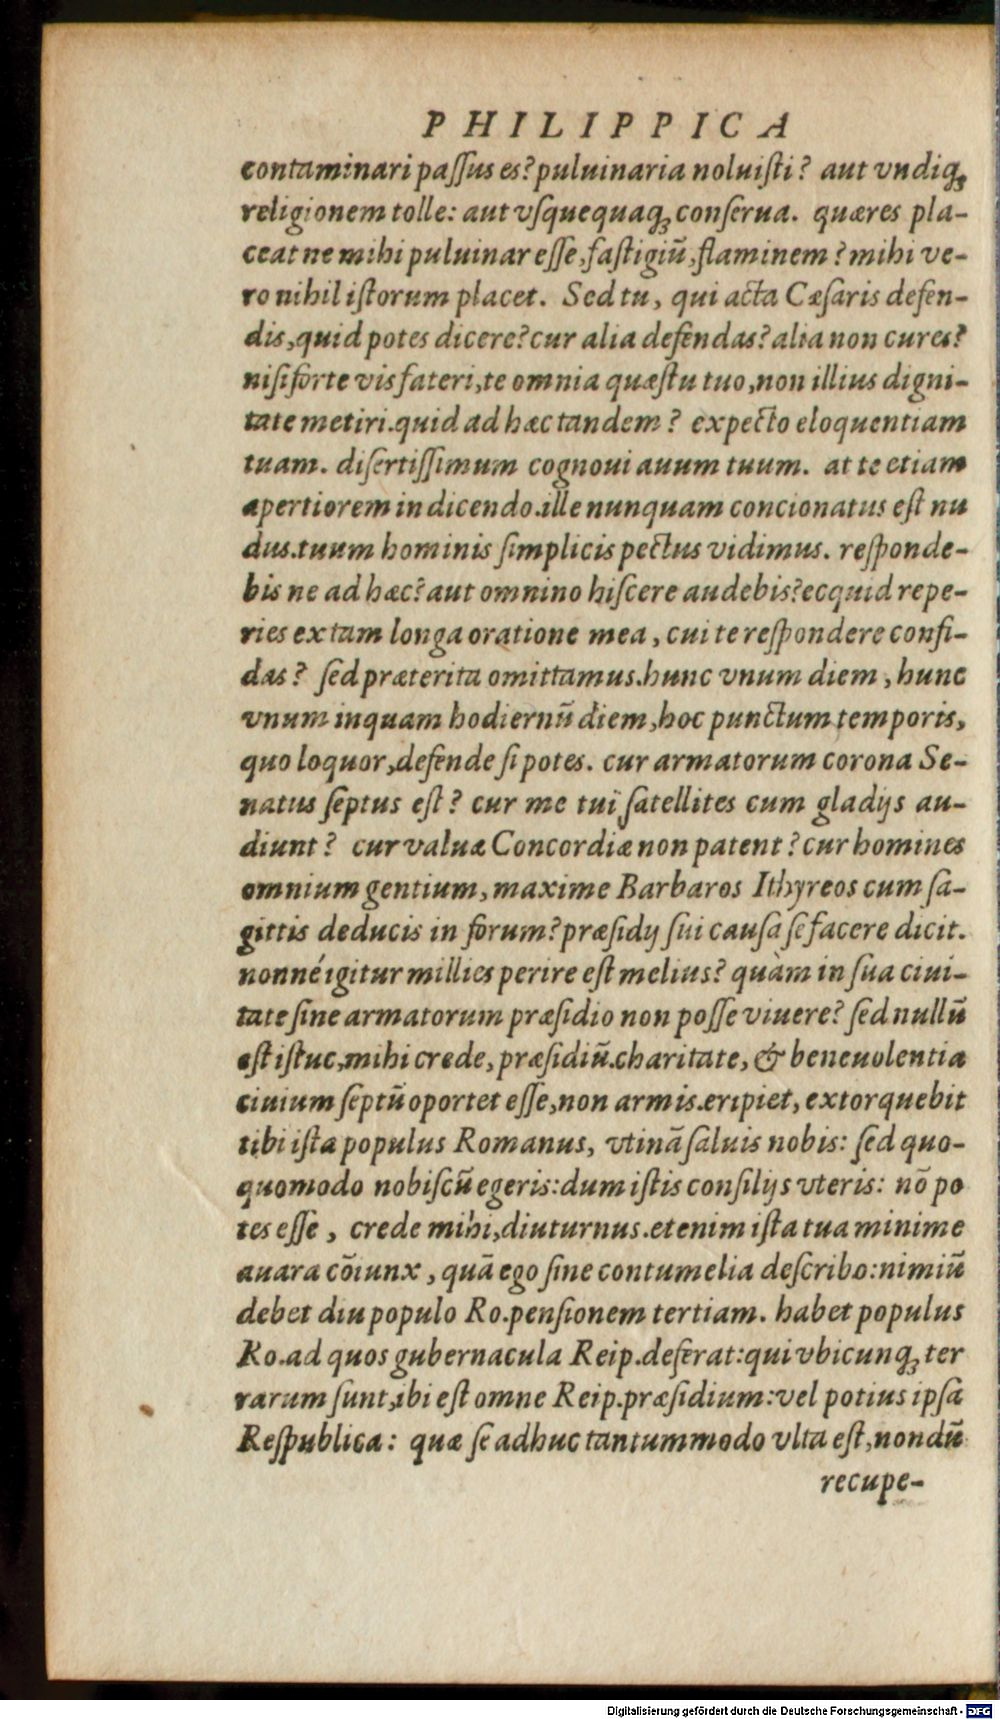 PHILIPPICA
contaminari paſſus es? puluinaria noluiſti? aut vndiq́ꝫ
religionem tolle: aut vſquequaqꝫ conſerua. quæres pla-
ceat ne mihi puluinar eſſe, faſtigiũ, flaminem? mihi ve-
ro nihil iſtorum placet. Sed tu, qui acta Cæſaris defen-
dis, quid potes dicere? cur alia defendas? alia non cures?
niſi forte vis fateri, te omnia quæſtu tuo, non illius digni-
tate metiri. quid ad hæc tandem? expecto eloquentiam
tuam. diſertiſſimum cognoui auum tuum. at te etiam
apertiorem in dicendo. ille nunquam concionatus eſt nu
dus. tuum hominis ſimplicis pectus vidimus. reſponde-
bis ne ad hæc? aut omnino hiſcere audebis? ecquid repe-
ries ex tam longa oratione mea, cui te reſpondere confi-
das? ſed præterita omittamus. hunc vnum diem, hunc
vnum inquam hodiernũ diem, hoc punctum temporis,
quo loquor, defende ſi potes. cur armatorum corona Se-
natus ſeptus eſt? cur me tui ſatellites cum gladijs au-
diunt? cur valuæ Concordiæ non patent? cur homines
omnium gentium, maxime Barbaros Ithyreos cum ſa-
gittis deducis in forum? præſidij ſui cauſa ſe facere dicit.
nonné igitur millies perire eſt melius? quàm in ſua ciui-
tate ſine armatorum præſidio non poſſe viuere? ſed nullũ
eſt iſtuc, mihi crede, præſidiũ. charitate, & beneuolentia
ciuium ſeptũ oportet eſſe, non armis. eripiet, extorquebit
tibi iſta populus Romanus, vtinã ſaluis nobis: ſed quo-
quomodo nobiſcũ egeris: dum iſtis conſilijs vteris: nõ po
tes eſſe, crede mihi, diuturnus. etenim iſta tua minime
auara cõiunx, quã ego ſine contumelia deſcribo: nimiũ
debet diu populo Ro. penſionem tertiam. habet populus
Ro. ad quos gubernacula Reip. deferat: qui vbicunqꝫ ter
rarum ſunt, ibi eſt omne Reip. præſidium: vel potius ipſa
Reſpublica: quæ ſe adhuc tantummodo vlta eſt, nondũ
recupe-
Digitalisierung gefördert durch die Deutsche Forschungsgemeinschaft - DFG